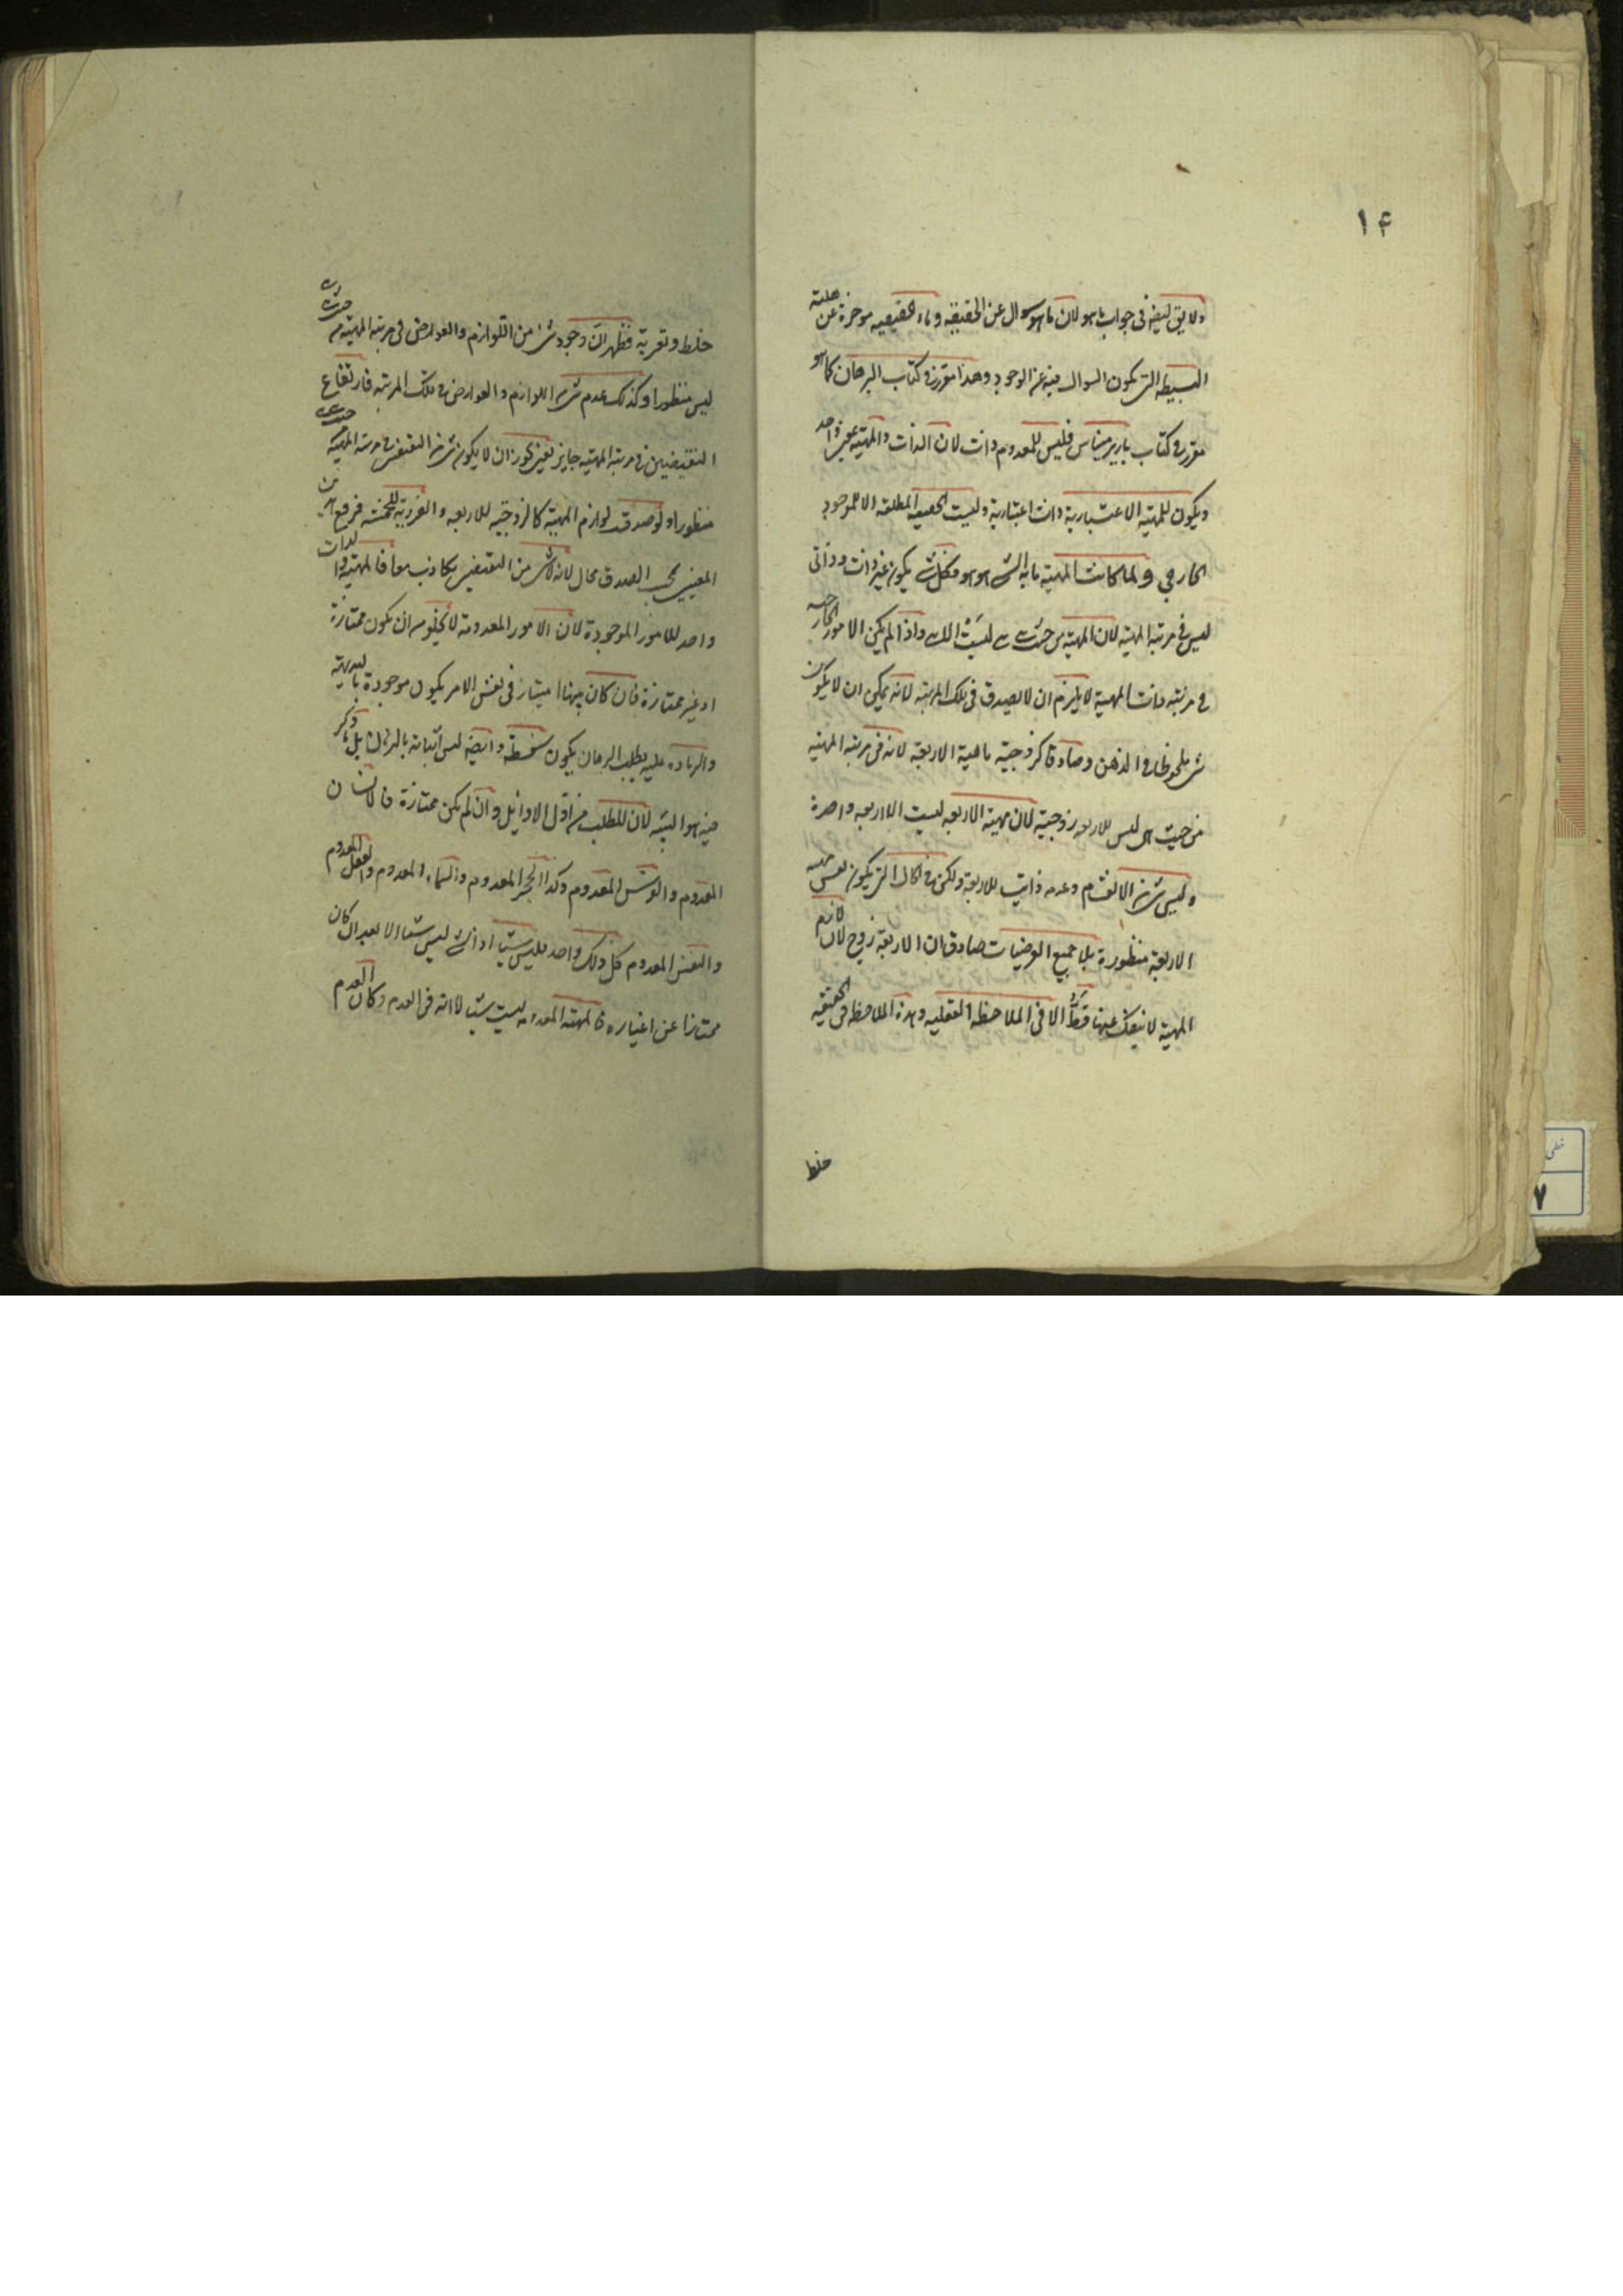 ١۴
ولا يقال ايضه في جواب ما هو لان ما هو سوال عن الحقيقة وماء الحقيقيه موخرة عن هلية
البسيطه التي يكون السوال فيه عن الوجود وهذا مقرر في كتاب البرهان كما هو
مقرر في كتاب باريرميناس فليس للمعدوم ذات لان الذات والمهية واحد
ويكون للمهية الاعتبارية ذات اعتبارية وليست الحقيقة المطلقه الا للموجود
الخارجي ولما كانت المهية ما به الشي هو هو فكل شي يكون غير ذات وذاتي
ليس في مرتبة المهية لان المهية من حيث هي ليست الا هي واذا لم يكن الامور الخارجيه
في مرتبه ذات المهية لا يلزم ان لا يصدق في تلك المرتبة لانه يمكن ان لا يكون
شي ملحوظا في الذهن وصادقا كزوجية ماهية الاربعة لانه في مرتبة المهية
من حيث هي ليس للاربعه زوجية لان مهية الاربعه ليست الا اربعه واحدة
وليس شي من الانقسام وعدمه ذاتي للاربعة ولكن في الحال التي يكون نفس مهية
الاربعة منظورة بلا جميع العرضيات صادق ان الاربعة زوج لان لازم
المهية لا ينفك عنها قط الا في الملاحظه العقليه وهذه الملاحظه في الحقيقيه
خلط
خلط وتعرية فظهر ان وجود شي من اللوازم والعوارض في مرتبه المهية من حيث هي
ليس منظورا وكذلك عدم شي اللوازم والعوارض في تلك المرتبه فارتفاع
النقيضين في مرتبه المهية جايز يعني يجوز ان لا يكون شي من النقيضين في مرتبه المهية من حيث هي
منظورا ولو صدقت لوازم المهية كالزوجية للاربعه والفردية للخمسه فرفع
بحسب الصدق محال لانه لا شي من النقيضين بكاذب معا فالمهية والذات
واحد للامور الموجودة لان الامور المعدومة لا يخلو من ان يكون ممتازة
او غير ممتازة فان كان بينها امتياز في نفس الامر يكون موجودة بالبديهة
والزياده عليه يطلب البرهان يكون سفسطة وايضه ليس اثباته بالبرهان بل ما ذكر
فيه هو التنبيه لان للطلب من اول الاوايل وان لم يكن ممتازة فالانسان
المعدوم والفرس المعدوم وكذا الحجر المعدوم والسماء المعدوم والعقل المعدوم
والنفس المعدوم كل ذلك واحد فليس شيئا اذ الشي ليس شيئا الا بعد ان كان
ممتازا عن اغياره فالمهية المعدومه ليست شيئا لانه في العدم وكان العدم